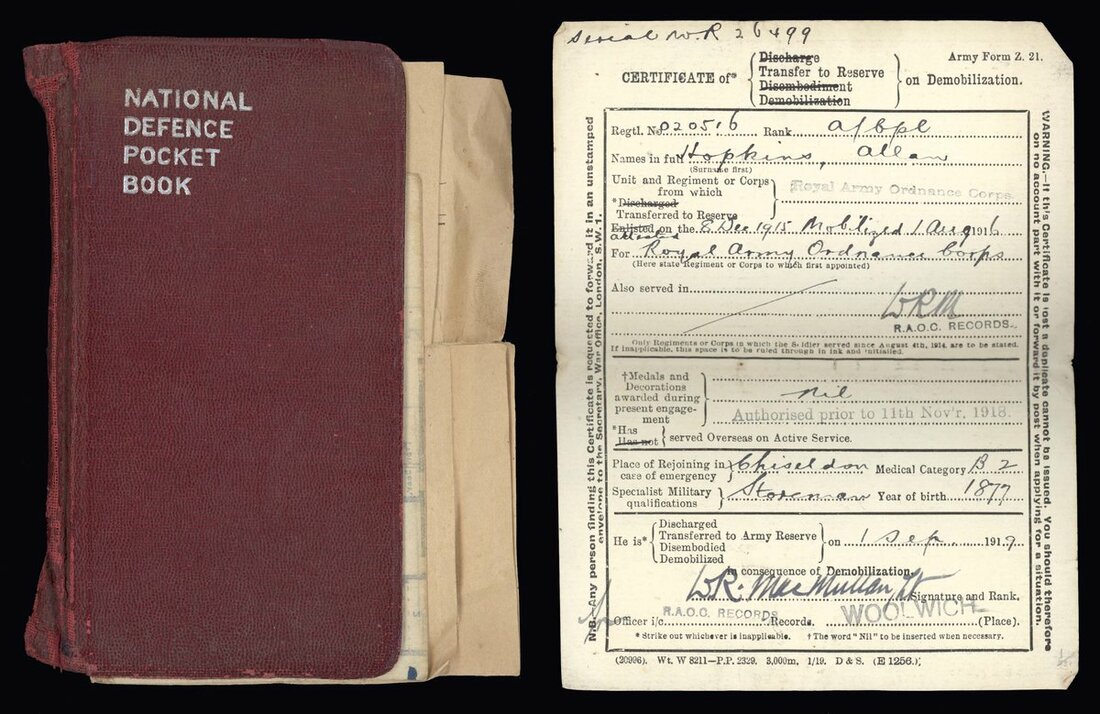 NATIONAL
DEFENCE
POCKET
BOOK
Serial W.R 26499
Army Form Z. 21.
CERTIFICATE of*
Discharge
Transfer to Reserve
Disembodiment
Demobilization
on Demobilization.
Regtl. No 020516 Rank a/bpl
Names in full Hopkins, Allan
(Surname first)
Unit and Regiment or Corps
from which
*Discharged
Transferred to Reserve
Royal Army Ordnance Corps.
Enlisted on the 8 Dec 1915 Mobilized 1 Aug 1916
attested
For Royal Army Ordnance Corps
(Here state Regiment or Corps to which first appointed)
Also served in
WRM
R.A.O.C. RECORDS.
Only Regiments or Corps in which the Soldier served since August 4th, 1914, are to be stated.
If inapplicable, this space is to be ruled through in ink and initialled.
†Medals and
Decorations
awarded during
present engage-
ment
nil
Authorised prior to 11th Nov'r, 1918.
*Has
Has not
served Overseas on Active Service.
Place of Rejoining in
care of emergency
Chiseldon Medical Category B 2
Specialist Military
qualifications
Storeman Year of birth 1877
He is*
Discharged
Transferred to Army Reserve
Disembodied
Demobilized
on 1 Sep. 1919
in consequence of Demobilization.
W.R. MacMullan Lt Signature and Rank.
R.A.O.C. RECORDS WOOLWICH
Officer i/c Records. (Place).
* Strike out whichever is inapplicable. † The word "Nil" to be inserted when necessary.
(20996). Wt. W 8211—P.P. 2329. 3,000m. 1/19. D & S. (E 1256.)
N.B.—Any person finding this Certificate is requested to forward it in an unstamped
envelope to the Secretary, War Office, London, S.W. 1.
WARNING.—If this Certificate is lost a duplicate cannot be issued. You should therefore
on no account part with it or forward it by post when applying for a situation.